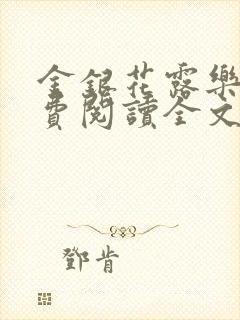 金銀花露樂
費閱讀全文
鄧肯